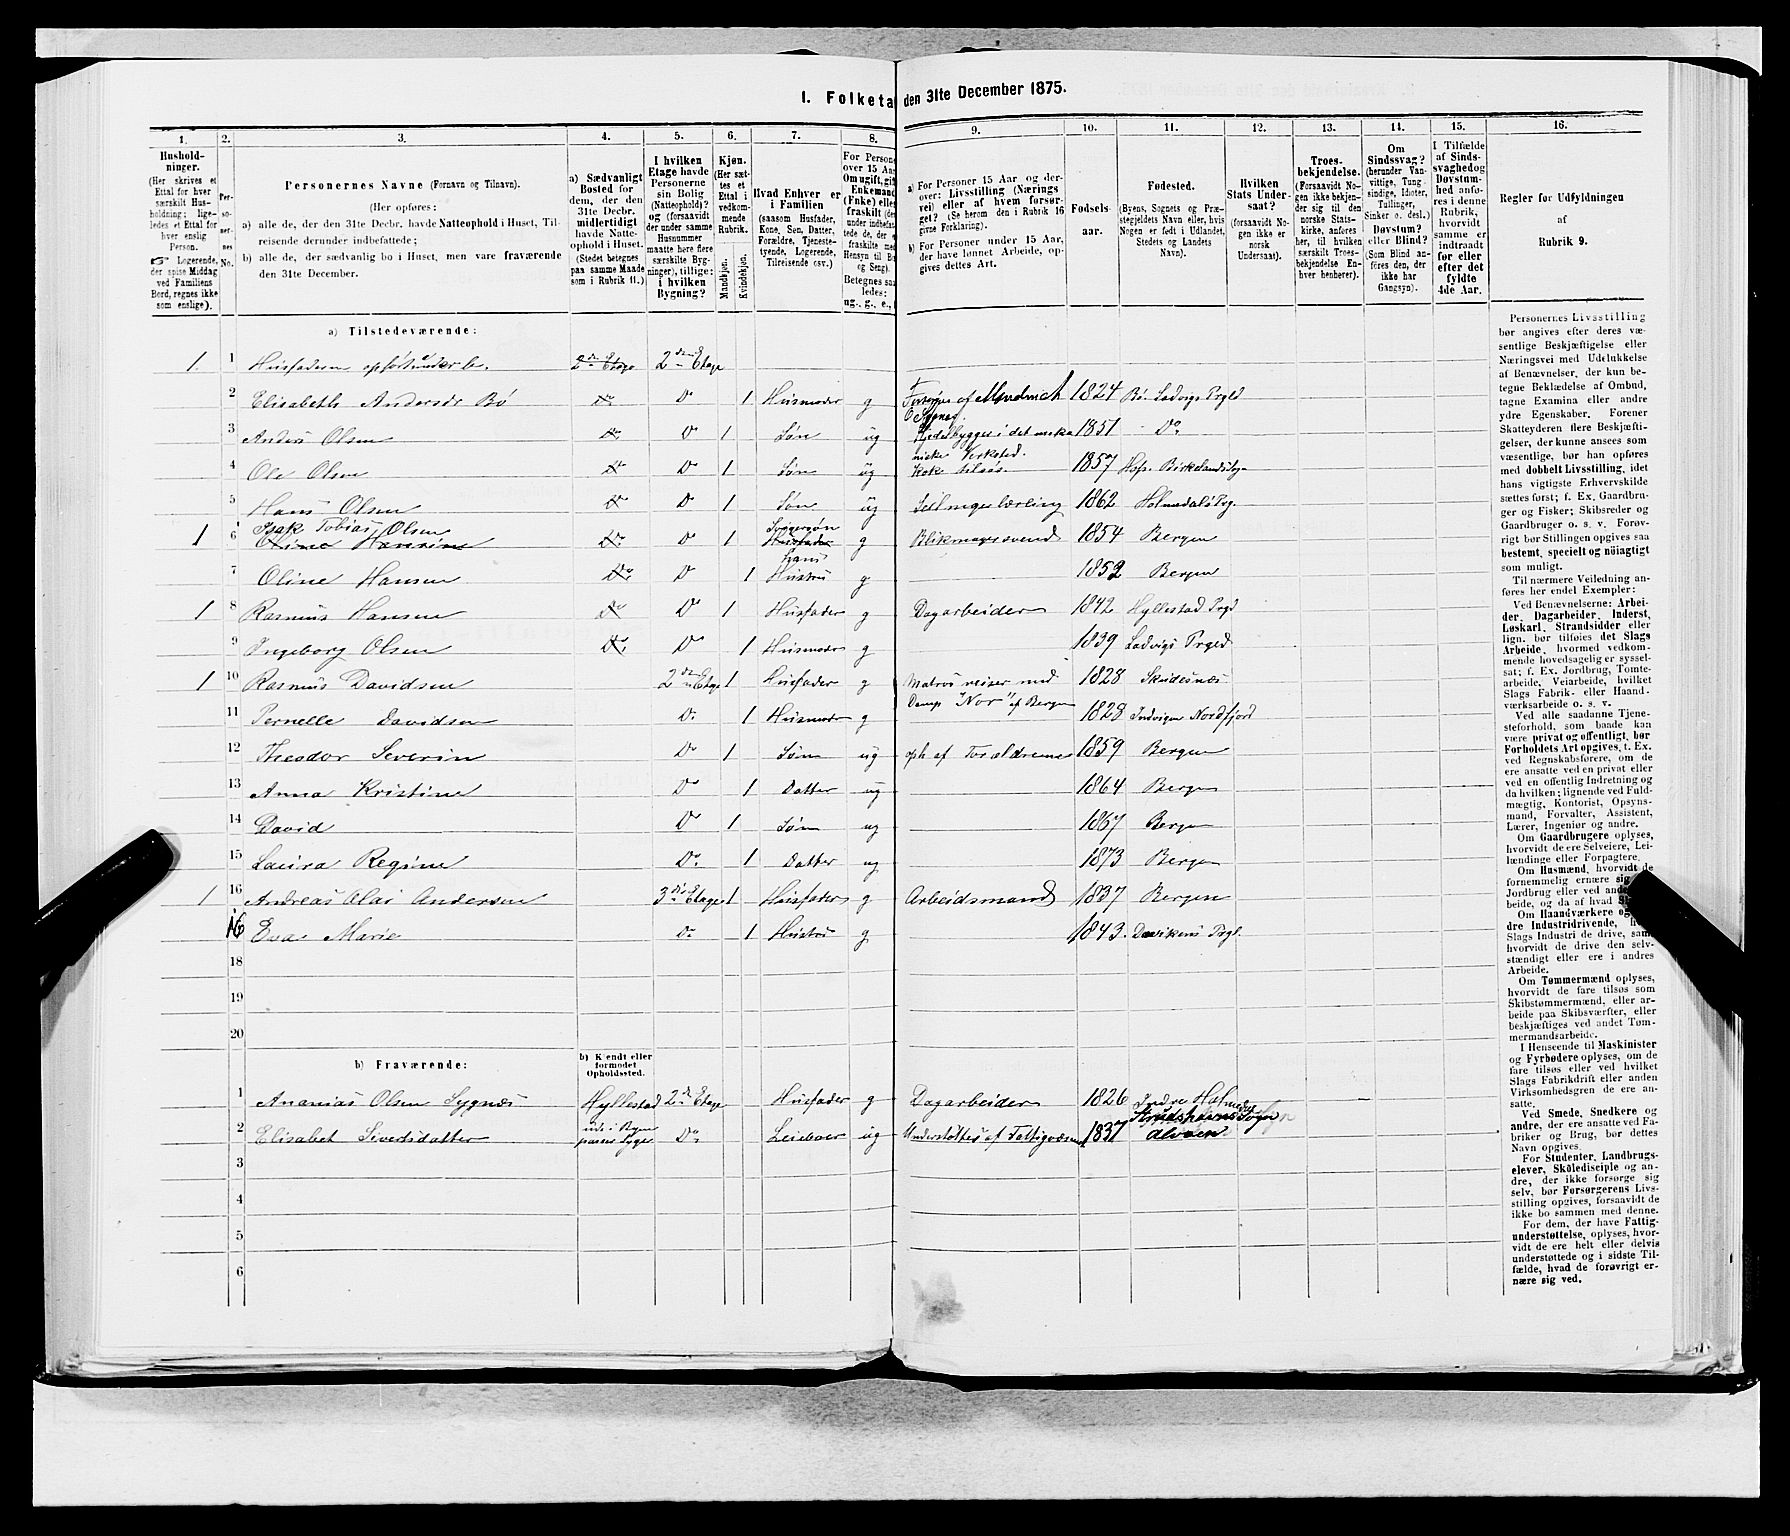 I. Folketa den 31te December 1875.
1. 2. 3. 4. 5. 6. 7. 8. 9. 10. 11. 12. 13. 14. 15. 16.
Hushold-
ninger.
(Her skrives et
Ettal for hver
særskilt Hus-
holdning; lige-
ledes et Ettal for
hver enslig
Person.
☞ Logerende,
der spise Middag
ved Familiens
Bord, regnes ikke
som enslige).
Per-
so-
ner-
nes
No.
Personernes Navne (Fornavn og Tilnavn).
(Her opføres:
a) alle de, der den 31te Decbr. havde Natteophold i Huset, Til-
reisende derunder indbefattede;
b) alle de, der sædvanlig bo i Huset, men vare fraværende
den 31te December.
a) Sædvanligt
Bosted for
dem, der den
31te Decbr.
midlertidigt
havde Natte-
ophold i Huset.
(Stedet betegnes
paa samme Maade
som i Rubrik 11.)
I hvilken
Etage havde
Personerne
sin Bolig
(Natteophold)?
og (forsaavidt
der under samme
Husnummer
maatte høre flere
særskilte Byg-
ninger), tillige:
i hvilken
Bygning?
Kjøn.
(Her sæt-
tes et
Ettal i
vedkom-
mende
Rubrik.
Mandkjøn.
Kvindekjøn.
Hvad Enhver er
i Familien
(saasom Husfader,
Kone, Søn, Datter,
Forældre, Tjeneste-
tyende, Logerende,
Tilreisende osv.)
For Persone
over 15 Aar
Om ugift, gif
Enkemand
(Enke) elle
fraskilt (der
under indbefat-
tede de, der e
fraskilte me
Hensyn til Bo
og Seng).
Betegnes saa
ledes:
ug., g., e.,
a) For Personer 15 Aar og der-
over: Livsstilling (Nærings
vei) eller af hvem forsør-
get? (Se herom den i Rubrik 16
givne Forklaring).
b) For Personer under 15 Aar,
der have lønnet Arbeide, op-
gives dettes Art.
Fødsels-
aar.
Fødested.
(Byens, Sognets og Præ-
stegjeldets Navn eller, hvis
Nogen er født i Udlandet,
Stedets og Landets
Navn).
Hvilken
Stats Under-
saat?
(forsaavidt No-
gen ikke er
norsk
Undersaat).
Troes-
bekjendelse.
(Forsaavidt No-
gen ikke bekjen-
der sig til den
norske Stats-
kirke, anføres
her, til hvilken
særskilt Troes-
bekjendelse En-
hver henhører).
Om
Sindssvag?
(herunder Van-
vittige, Tung-
sindige, Idioter,
Tullinger,
Sinker o. desl.)
Døvstum?
eller Blind?
(Som Blind an-
føres den, der
ikke har
Gangsyn).
I Tilfælde
af Sinds-
svaghed og
Døvstum-
hed anfø-
res i denne
Rubrik,
hvorvidt
samme er
indtraadt
før eller
efter det
fyldte
4de Aar.
Regler for Udfyldningen
af
Rubrik 9.
a) Tilstedeværende:
1. 1 Husfaderen opført under b. 2den Etage 2den Etage
2 Elisabeth Andersdr Bø Do Do 1 Husmoder g 1824 Bø Ladvigs Prgld
3 Anders Olsen Do Do 1 Søn ug Kjedelbygger i det meka 1851 Do
niske Verksted.
4 Ole Olsen Do Do 1 Søn ug Kok tilsøs. 1857
5 Hans Olsen Do Do 1 Søn ug Seilmagerlærling 1862 Holmedals Prg.
Isak Tobias Olsen
1 6 Oline Hansine Do Do 1 Husfader g Blikmagersvend 1854 Bergen
Hans
7 Oline Hansen Do Do 1 Hustru g 1852 Bergen
1 8 Rasmus Hansen Do Do 1 Husfader g Dagarbeider 1842 Hyllestad Prgd
9 Ingeborg Olsen Do Do 1 Husmoder g 1839 Ladvigs Prgld
1 10 Rasmus Davidsen 2den Etage 1 Husfader g Matros reiser med 1828 Skudesnæs
Damp "Nor" af Bergen
11 Pernelle Davidsen Do 1 Husmoder g 1828 Indvigen Nordfjord
12 Theodor Severin Do 1 Søn ug oph af Forældrene 1859 Bergen
13 Anna Kristine Do 1 Datter ug 1864 Bergen
14 David Do 1 Søn ug 1867 Bergen
15 Laura Regine Do 1 Datter ug 1873 Bergen
1 16 Andreas Olai Andersen 3die Etage 1 Husfader g Arbeidsmand 1837 Bergen
16 Eva Marie Do 1 Hustru g 1843. Davikens Prgl.
18
19
20
b) Fraværende:
b) Kjendt eller
formodet
Opholdssted.
1 Ananias Olsen Sygnæs Hyllestad 2den Etage Husfader g Dagarbeider 1826 Indre Holmedal
2 Elisabet Sivertsdatter Do ug Understøttes af Fattigvæsenet 1837 Alvøen
3
4
5
6
Personernes Livsstilling
bør angives efter deres væ-
sentlige Beskjæftigelse eller
Næringsvei med Udelukkelse
af Benævnelser, der kun be-
tegne Beklædelse af Ombud,
tagne Examina eller andre
ydre Egenskaber. Forener
Skatteyderen flere Beskjæfti-
gelser, der kunne ansees som
væsentlige, bør han opføres
med dobbelt Livsstilling, idet
hans vigtigste Erhvervskilde
sættes først; f. Ex. Gaardbru-
ger og Fisker; Skibsreder og
Gaardbruger o. s. v. Forøv-
rigt bør Stillingen opgives saa
bestemt, specielt og nøiagtigt
som muligt.
Til nærmere Veiledning an-
føres her endel Exempler:
Ved Benævnelserne: Arbei-
der, Dagarbeider, Inderst,
Løskarl, Strandsidder eller
lign. bør tilføies det Slags
Arbeide, hvormed vedkom-
mende hovedsagelig er syssel-
sat; f. Ex. Jordbrug, Tomte-
arbeide, Veiarbeide, hvilket
Slags Fabrik- eller Haand-
værksarbeide o. s. v.
Ved alle saadanne Tjene-
steforhold, som baade kan
være privat og offentligt, bør
Forholdets Art opgives, t. Ex.
ved Regnskabsførere, om de
ere ansatte ved en privat eller
ved en offentlig Indretning og
da hvilken; lignende ved Fuld-
mægtig, Kontorist, Opsyns-
mand, Forvalter, Assistent,
Lærer, Ingeniør og andre.
Om Gaardbrugere oplyses,
hvorvidt de ere Selveiere, Lei-
lændinge eller Forpagtere.
Om Husmænd, hvorvidt de
fornemmelig ernære sig
Jordbrug eller ved and
beide, og da af hvad
Om Haandværkere og
dre Industridrivende,
Slags Industri de drive, sam
hvorvidt de drive den selv-
stændigt eller ere i andres
Arbeide.
Om Tømmermænd oplyses,
hvorvidt de fare tilsøs som
Skibstømmermænd, eller ar-
beide paa Skibsværfter, eller
beskjæftiges ved andet Tøm-
mermandsarbeide.
I Henseende til Maskinister
og Fyrbødere oplyses, om de
fare tilsøs eller ved hvilket
Slags Fabrikdrift eller anden
Virksomhedsgren de ere an-
satte.
Ved Smede, Snedkere og
andre, der ere ansatte ved Fa-
briker og Brug, bør dettes
Navn opgives.
For Studenter, Landbrugs-
elever, Skoledisciple og an-
dre, der ikke forsørge sig
selv, bør Forsørgerens Livs-
stilling opgives, forsaavidt de
ikke bo sammen med denne.
For dem, der have Fattig-
understøttelse, oplyses, hvor-
vidt de ere helt eller delvis
understøttede og i sidste Til-
fælde, hvad de forøvrigt er-
nære sig ved.